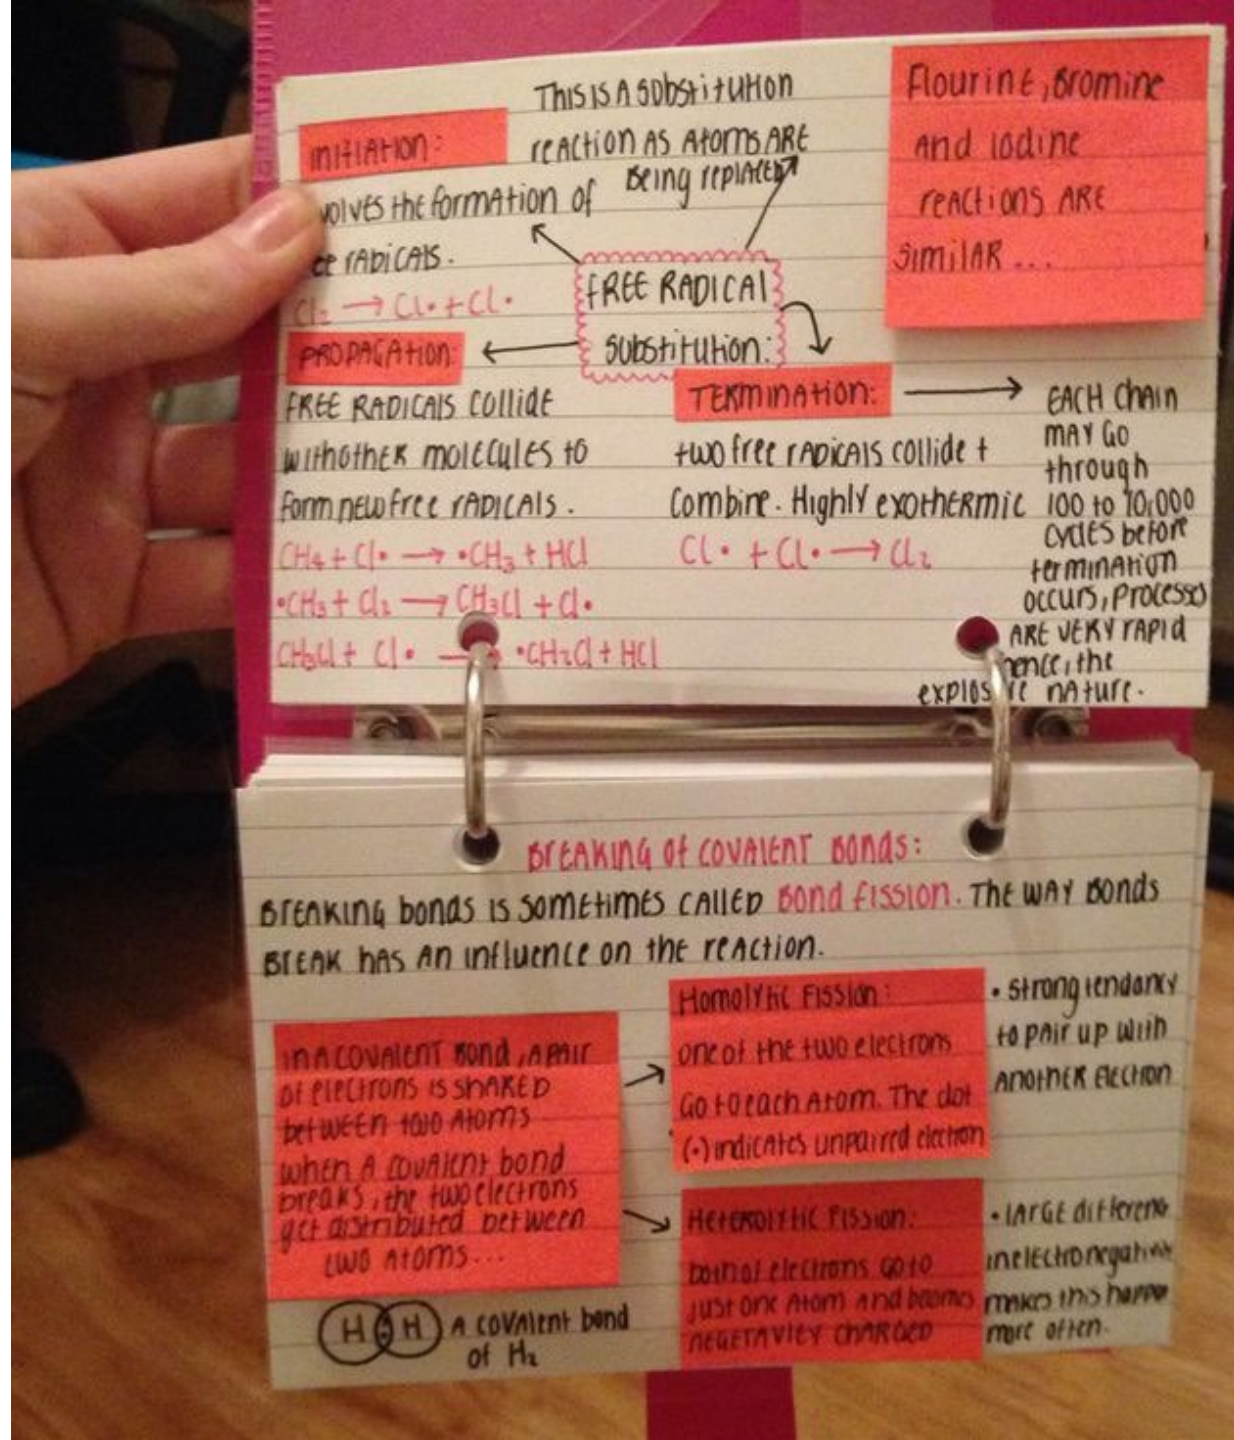 THIS IS A SUBSTITUTION
REACTION AS ATOMS ARE
BEING REPLACED
INITIATION:
volves the formation of
ee RADICALS.
Cl₂ → Cl• + Cl•
FREE RADICAL
SUBSTITUTION:
Flourine, Bromine
and Iodine
reactions are
similar ...
PROPAGATION:
FREE RADICALS COLLIDE
with other molecules to
form new free radicals.
CH₄ + Cl• → •CH₃ + HCl
•CH₃ + Cl₂ → CH₃Cl + Cl•
CH₃Cl + Cl• → •CH₂Cl + HCl
TERMINATION:
two free radicals collide +
combine. Highly exothermic
Cl• + Cl• → Cl₂
EACH chain
MAY GO
through
100 to 10,000
cycles before
termination
occurs, processes
ARE VERY rapid
hence, the
explosive nature.
BREAKING OF COVALENT BONDS:
BREAKING bonds is sometimes called Bond fission. The way bonds
break has an influence on the reaction.
IN A COVALENT BOND, A PAIR
of electrons is shared
between two atoms
when a covalent bond
breaks, the two electrons
get distributed between
two atoms...
Homolytic Fission:
one of the two electrons
Go to each Atom. The dot
(•) indicates unpaired electron
• strong tendancy
to pair up with
another electron
Heterolytic Fission:
both of electrons go to
just one atom and becomes
negetavley charged
• Large differenc
in electronegativit
makes this happe
more often.
H H A covalent bond
of H₂